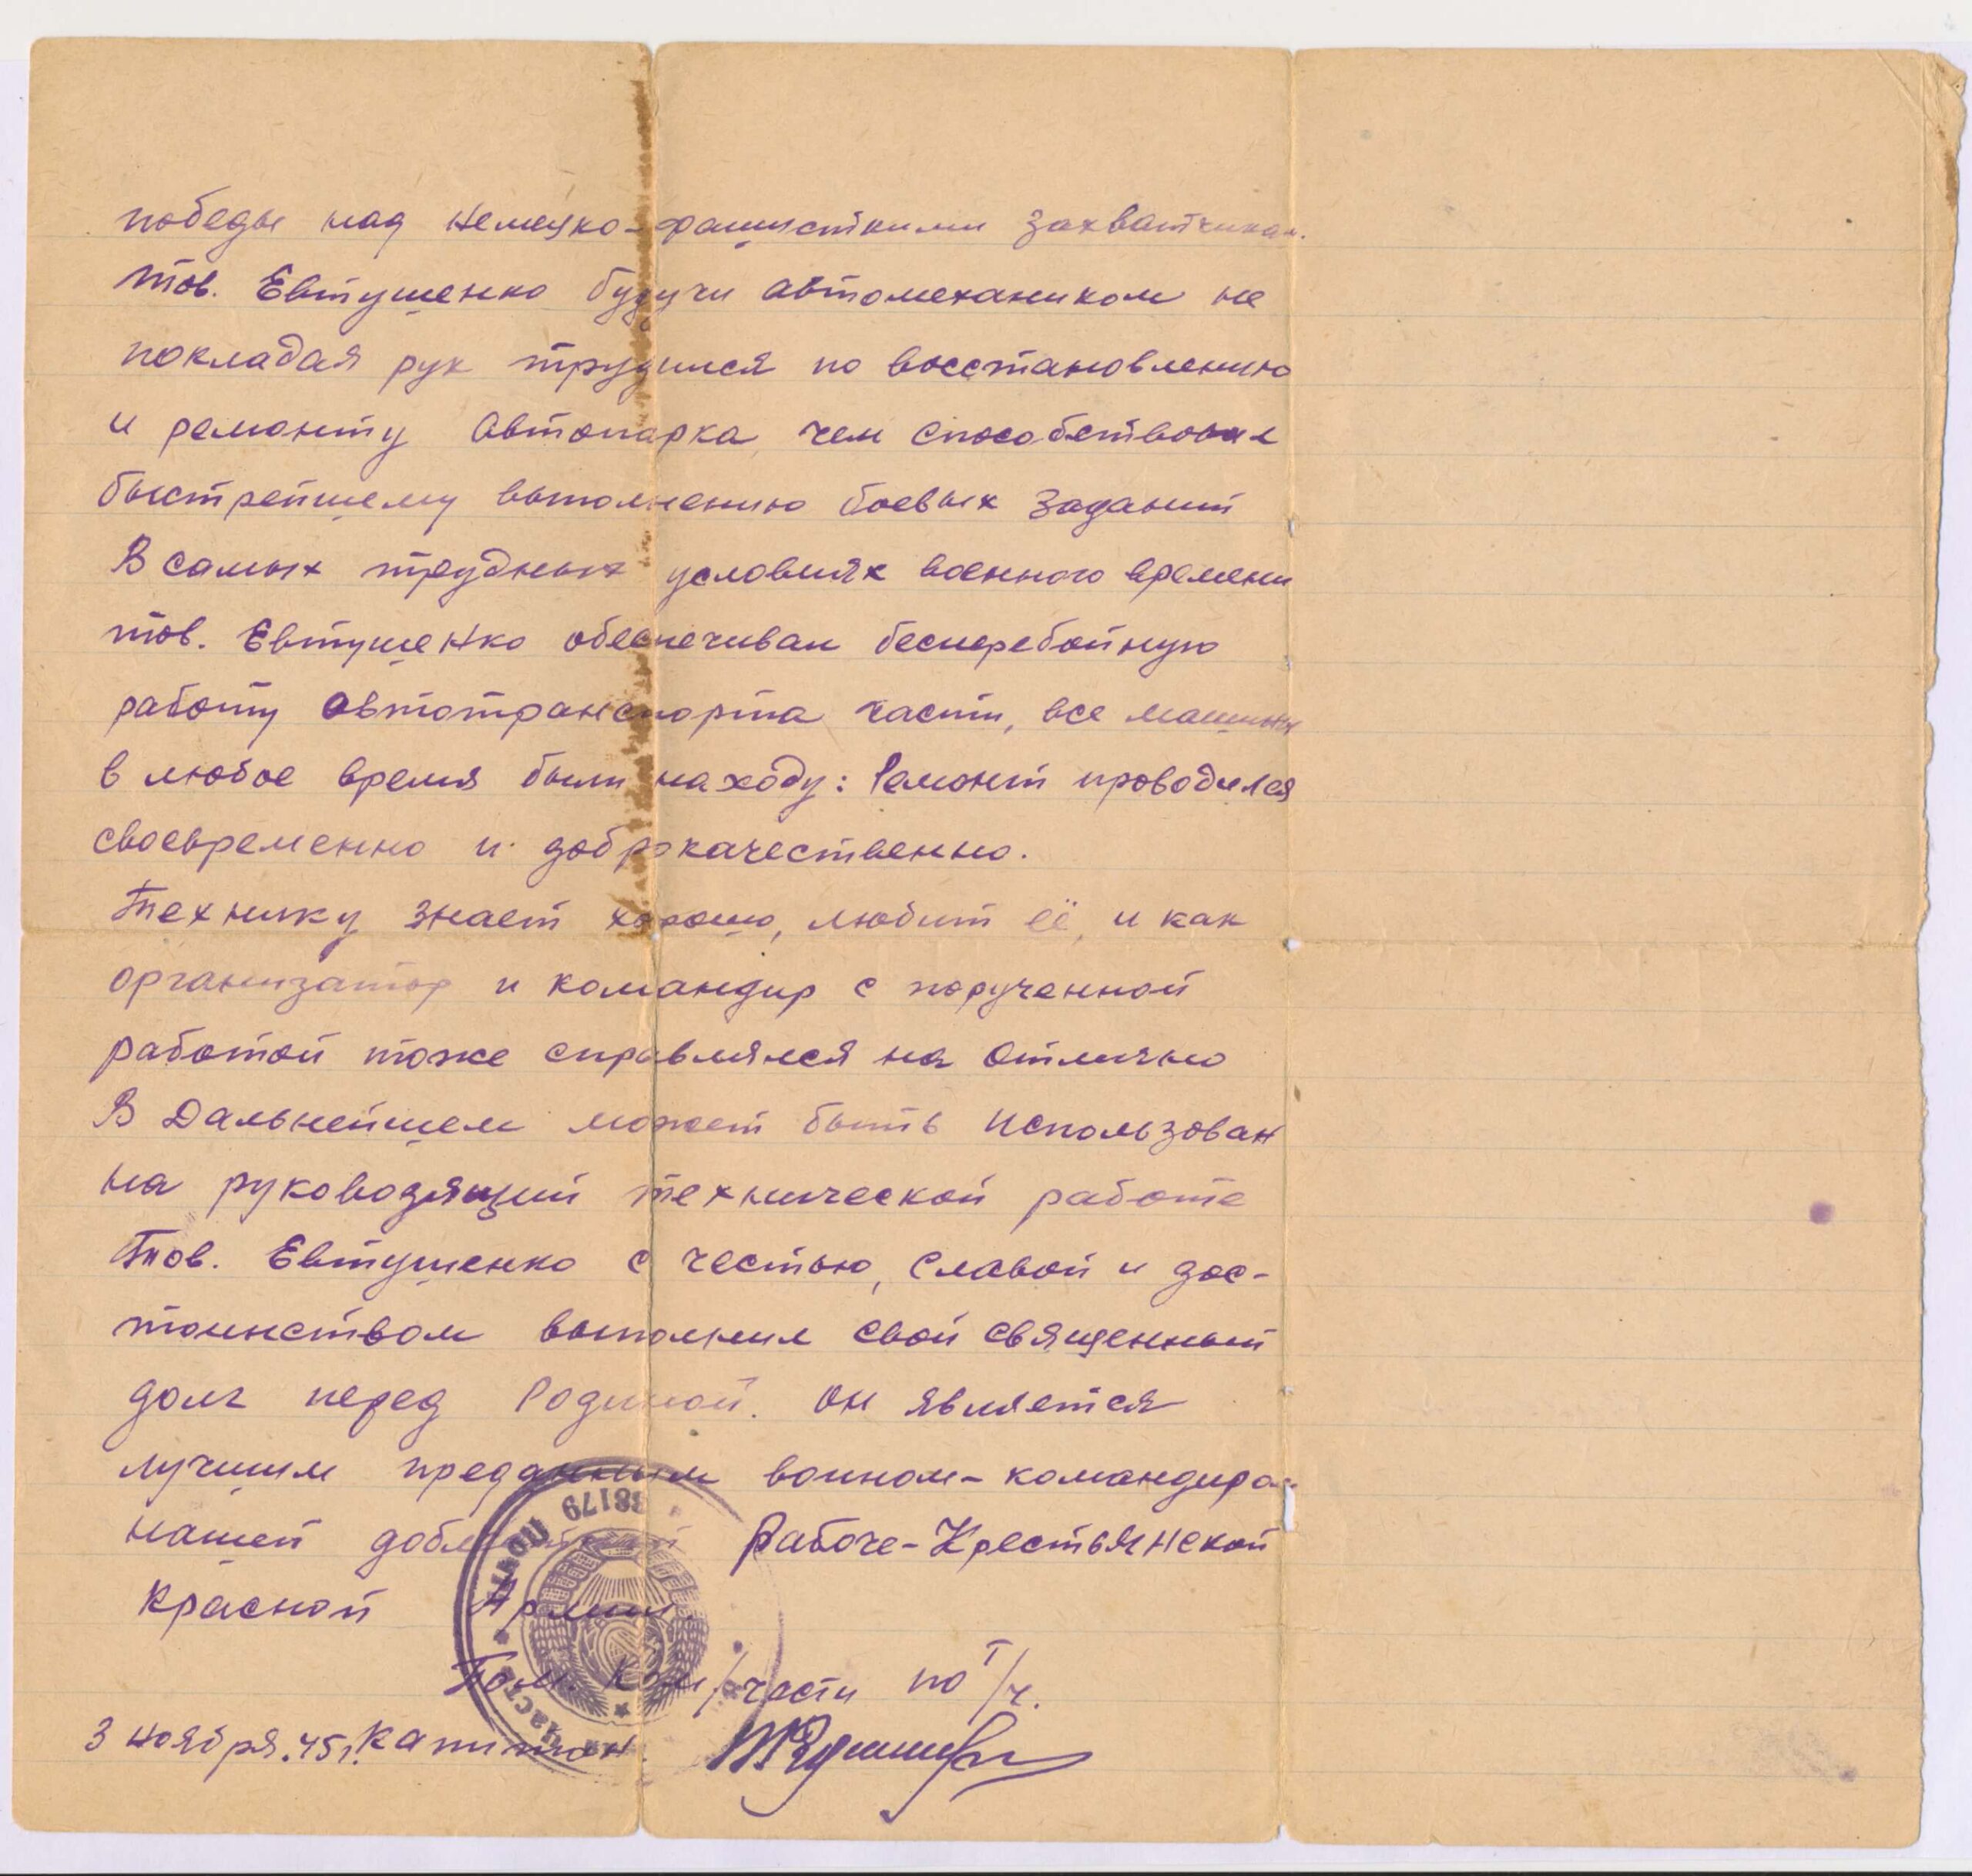 победы над Немецко-фашисткими захватчикам.
тов. Евтушенко будучи автомехаником не
покладая рук трудился по восстановлению
и ремонту автопарка, чем способствовал
быстрейшему выполнению боевых заданий
В самых трудных условиях военного времени
тов. Евтушенко обеспечивал бесперебойную
работу автотранспорта части, все машины
в любое время были находу: Ремонт проводился
своевременно и доброкачественно.
Технику знает хорошо, любит её, и как
организатор и командир с порученной
работой тоже справлялся на отлично
В Дальнейшем может быть использован
на руководящий технической работе
Тов. Евтушенко с честью, славой и дос-
тоинством выполнил свой священный
долг перед Родиной. Он является
лучшим преданным воином-командиром
нашей доблестной Рабоче-Крестьянской
Красной Армии.
Пом. Ком/части по Т/ч.
3 ноября.45г. Капитан
38179 ПОЧТА
ЧАСТЬ